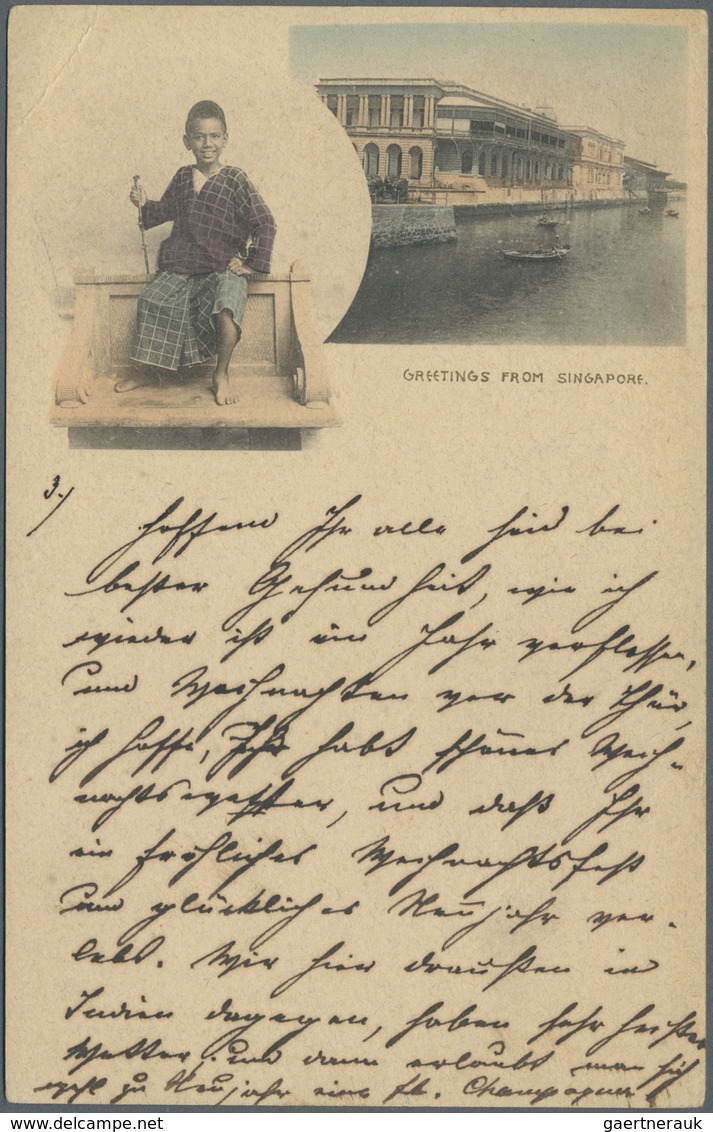 GREETINGS FROM SINGAPORE.
3.)
hoffend Ihr alle seid bei
bester Gesundheit, wie ich
wieder ist ein Jahr verflossen,
und Weihnachten vor der Thür,
ich hoffe, Ihr habt schönes Weih-
nachtswetter, und daß Ihr
ein fröhliches Weihnachtsfest
und glückliches Neujahr ver-
lebt. Wir hier draußen in
Indien dagegen, haben sehr heißes
Wetter, und dann erlaubt man sich
wohl zu Neujahr eine fl. Champagner
gaertnerauk